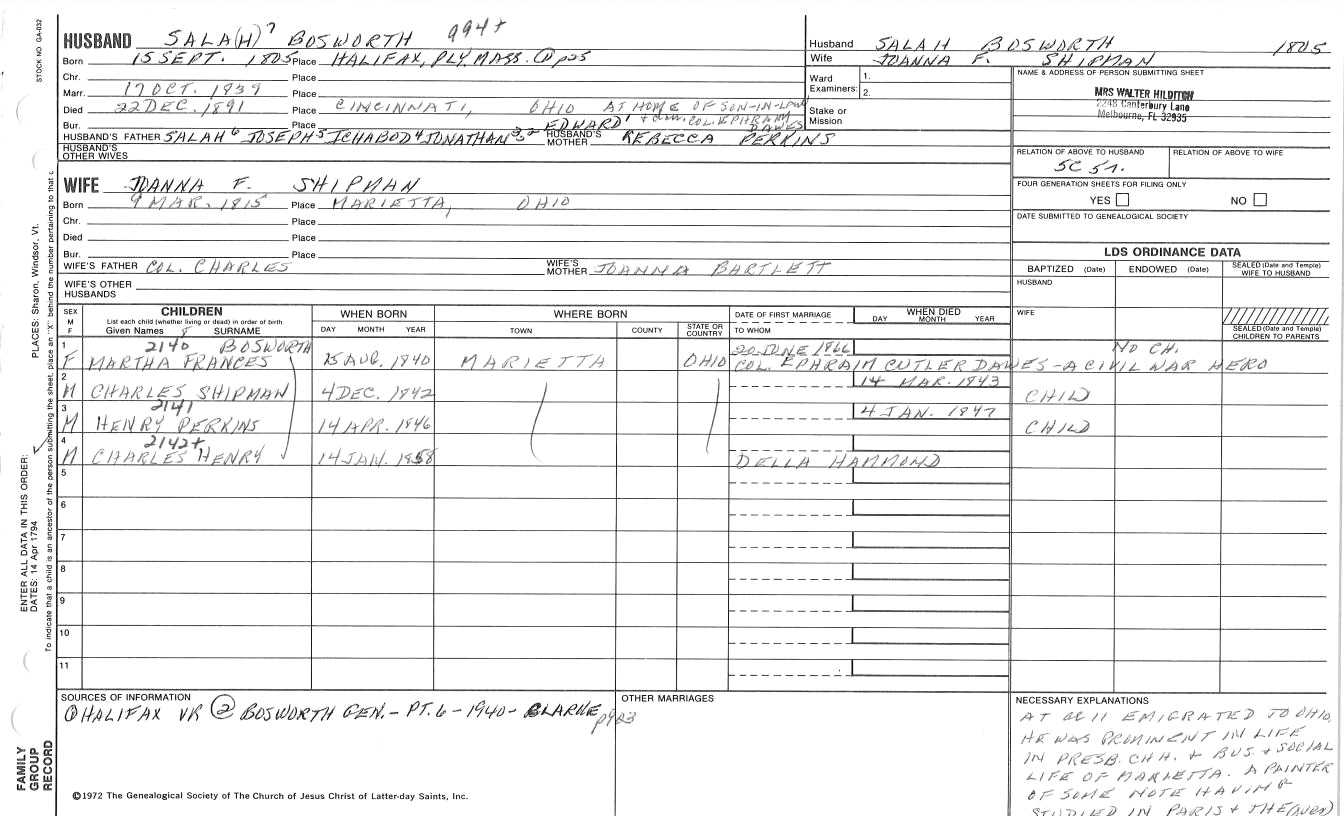 STOCK NO. GA-032
HUSBAND SALA(H)7 BOSWORTH 994+
Born 15 SEPT. 1805 Place HALIFAX, PLY. MASS. ① p25
Chr. Place
Marr. 17 OCT. 1839 Place
Died 22 DEC. 1891 Place CINCINNATI, OHIO AT HOME OF SON-IN-LAW
Bur. Place EPHRAIM DAWES
HUSBAND'S FATHER SALAH6 JOSEPH5 ICHABOD4 JONATHAN3,2 EDWARD1 HUSBAND'S MOTHER REBECCA PERKINS
HUSBAND'S OTHER WIVES
Husband SALAH BOSWORTH 1805
Wife JOANNA F. SHIPMAN
Ward Examiners: 1.
2.
Stake or Mission
NAME & ADDRESS OF PERSON SUBMITTING SHEET
MRS WALTER HILDITCH
2248 Canterbury Lane
Melbourne, FL 32935
RELATION OF ABOVE TO HUSBAND RELATION OF ABOVE TO WIFE
FOUR GENERATION SHEETS FOR FILING ONLY
YES NO
DATE SUBMITTED TO GENEALOGICAL SOCIETY
WIFE JOANNA F. SHIPMAN
Born 9 MAR. 1815 Place MARIETTA, OHIO
Chr. Place
Died Place
Bur. Place
WIFE'S FATHER COL. CHARLES WIFE'S MOTHER JOANNA BARTLETT
WIFE'S OTHER HUSBANDS
LDS ORDINANCE DATA
BAPTIZED (Date) ENDOWED (Date) SEALED (Date and Temple) WIFE TO HUSBAND
HUSBAND
WIFE
SEALED (Date and Temple) CHILDREN TO PARENTS
SEX M F CHILDREN WHEN BORN WHERE BORN DATE OF FIRST MARRIAGE WHEN DIED
List each child (whether living or dead) in order of birth
Given Names 8 SURNAME DAY MONTH YEAR TOWN COUNTY STATE OR COUNTRY TO WHOM DAY MONTH YEAR
1 2140 BOSWORTH 20 JUNE 1866 NO CH.
F MARTHA FRANCES 25 AUG. 1840 MARIETTA OHIO COL. EPHRAIM CUTLER DAWES - A CIVIL WAR HERO
2 14 MAR. 1843
M CHARLES SHIPMAN 4 DEC. 1842 CHILD
3 2141 4 JAN. 1847
M HENRY PERKINS 14 APR. 1846 CHILD
4 2142+
M CHARLES HENRY 14 JAN. 1858 DELLA HAMMOND
5
6
7
8
9
10
11
SOURCES OF INFORMATION
① HALIFAX VR ② BOSWORTH GEN. - PT. 6 - 1940 - CLARKE p923
OTHER MARRIAGES
NECESSARY EXPLANATIONS
AT AE 11 EMIGRATED TO OHIO.
HE WAS PROMINENT IN LIFE
IN PRESB. CHH. + BUS + SOCIAL
LIFE OF MARIETTA. A PAINTER
OF SOME NOTE HAVING
STUDIED IN PARIS + THE (OVER)
©1972 The Genealogical Society of The Church of Jesus Christ of Latter-day Saints, Inc.
ENTER ALL DATA IN THIS ORDER:
DATES: 14 Apr 1794
PLACES: Sharon, Windsor, Vt.
To indicate that a child is an ancestor of the person submitting the sheet, place an "X" behind the number pertaining to that c
FAMILY
GROUP
RECORD